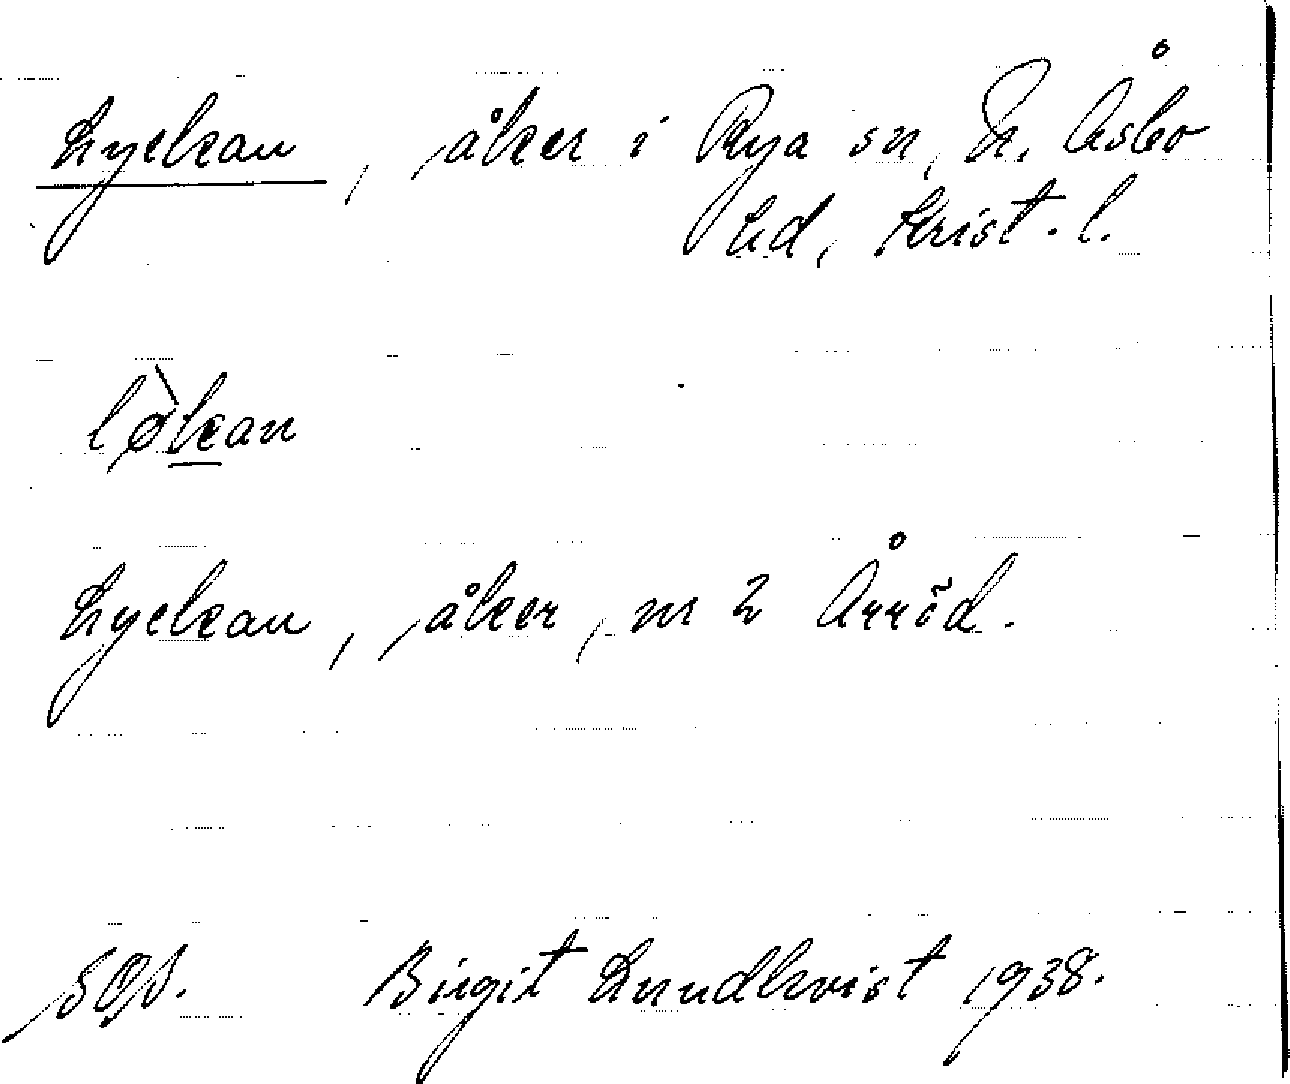 Lyckan, åker i Rya sn, N. Åsbo
hd, Krist. l.
lø̀kan
Lyckan, åker, nr 2 Årröd.
Birgit Lundkvist 1938.